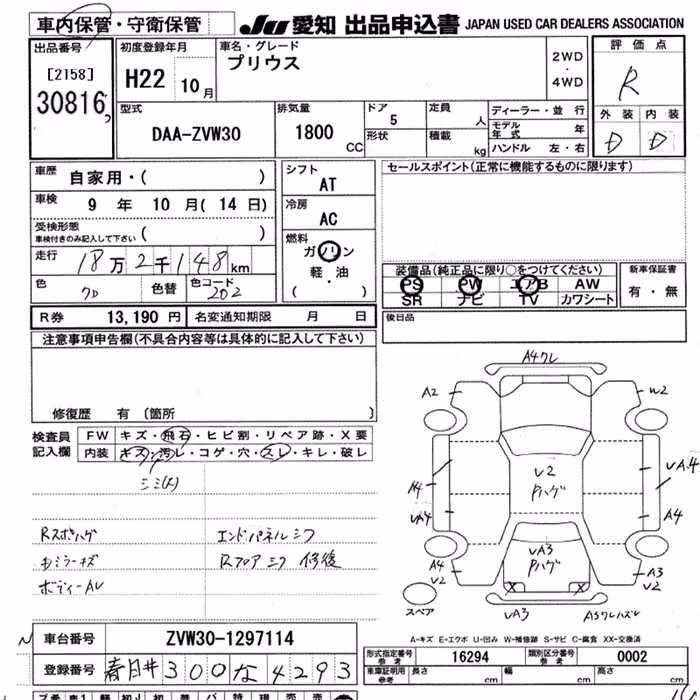 車内保管・守衛保管
JU 愛知 出品申込書 JAPAN USED CAR DEALERS ASSOCIATION
出品番号
[2158]
30816
初度登録年月
H22 10月
車名・グレード
プリウス
2WD
・
4WD
評価点
R
外装 内装
D D
型式
DAA-ZVW30
排気量
1800 CC
ドア
5
形状
定員
人
積載
kg
ディーラー・並行
モデル年式 年
ハンドル 左・右
車歴 自家用・( )
車検 9年 10月(14日)
受検形態
車検付きのみ記入して下さい ( )
走行 18万2千148km
色 クロ 色替 色コード 202
シフト
AT
冷房
AC
燃料
ガソリン
軽・油
( )
セールスポイント(正常に機能するものに限ります)
装備品(純正品に限り○をつけてください)
PS PW エアB AW
SR ナビ TV カワシート
新車保証書
有・無
R券 13,190円 名変通知期限 月 日
後日品
注意事項申告欄(不具合内容等は具体的に記入して下さい)
修復歴 有 (箇所 )
検査員
記入欄
FW キズ・飛石・ヒビ割・リペア跡・X要
内装 キズ・汚レ・コゲ・穴・スレ・キレ・破レ
シミ(大)
Rスポハゲ エンドパネルミフ
右ミラーキズ Rフロアミフ 修復
ボディーAU
A4ワレ
A2 W2
U2
Pハゲ
A4 UA4
UA4 A4
UA3
Pハゲ
A4
U2
A3
U2
X X
スペア
UA3 A5ワレハズレ
A-キズ E-エクボ U-凹み W-補修跡 S-サビ C-腐食 XX-交換済
車台番号 ZVW30-1297114
登録番号 春日井 300 な 4293
形式指定番号
参考 16294
類別区分番号
参考 0002
車庫証明用
参考 長さ cm 幅 cm 高さ cm